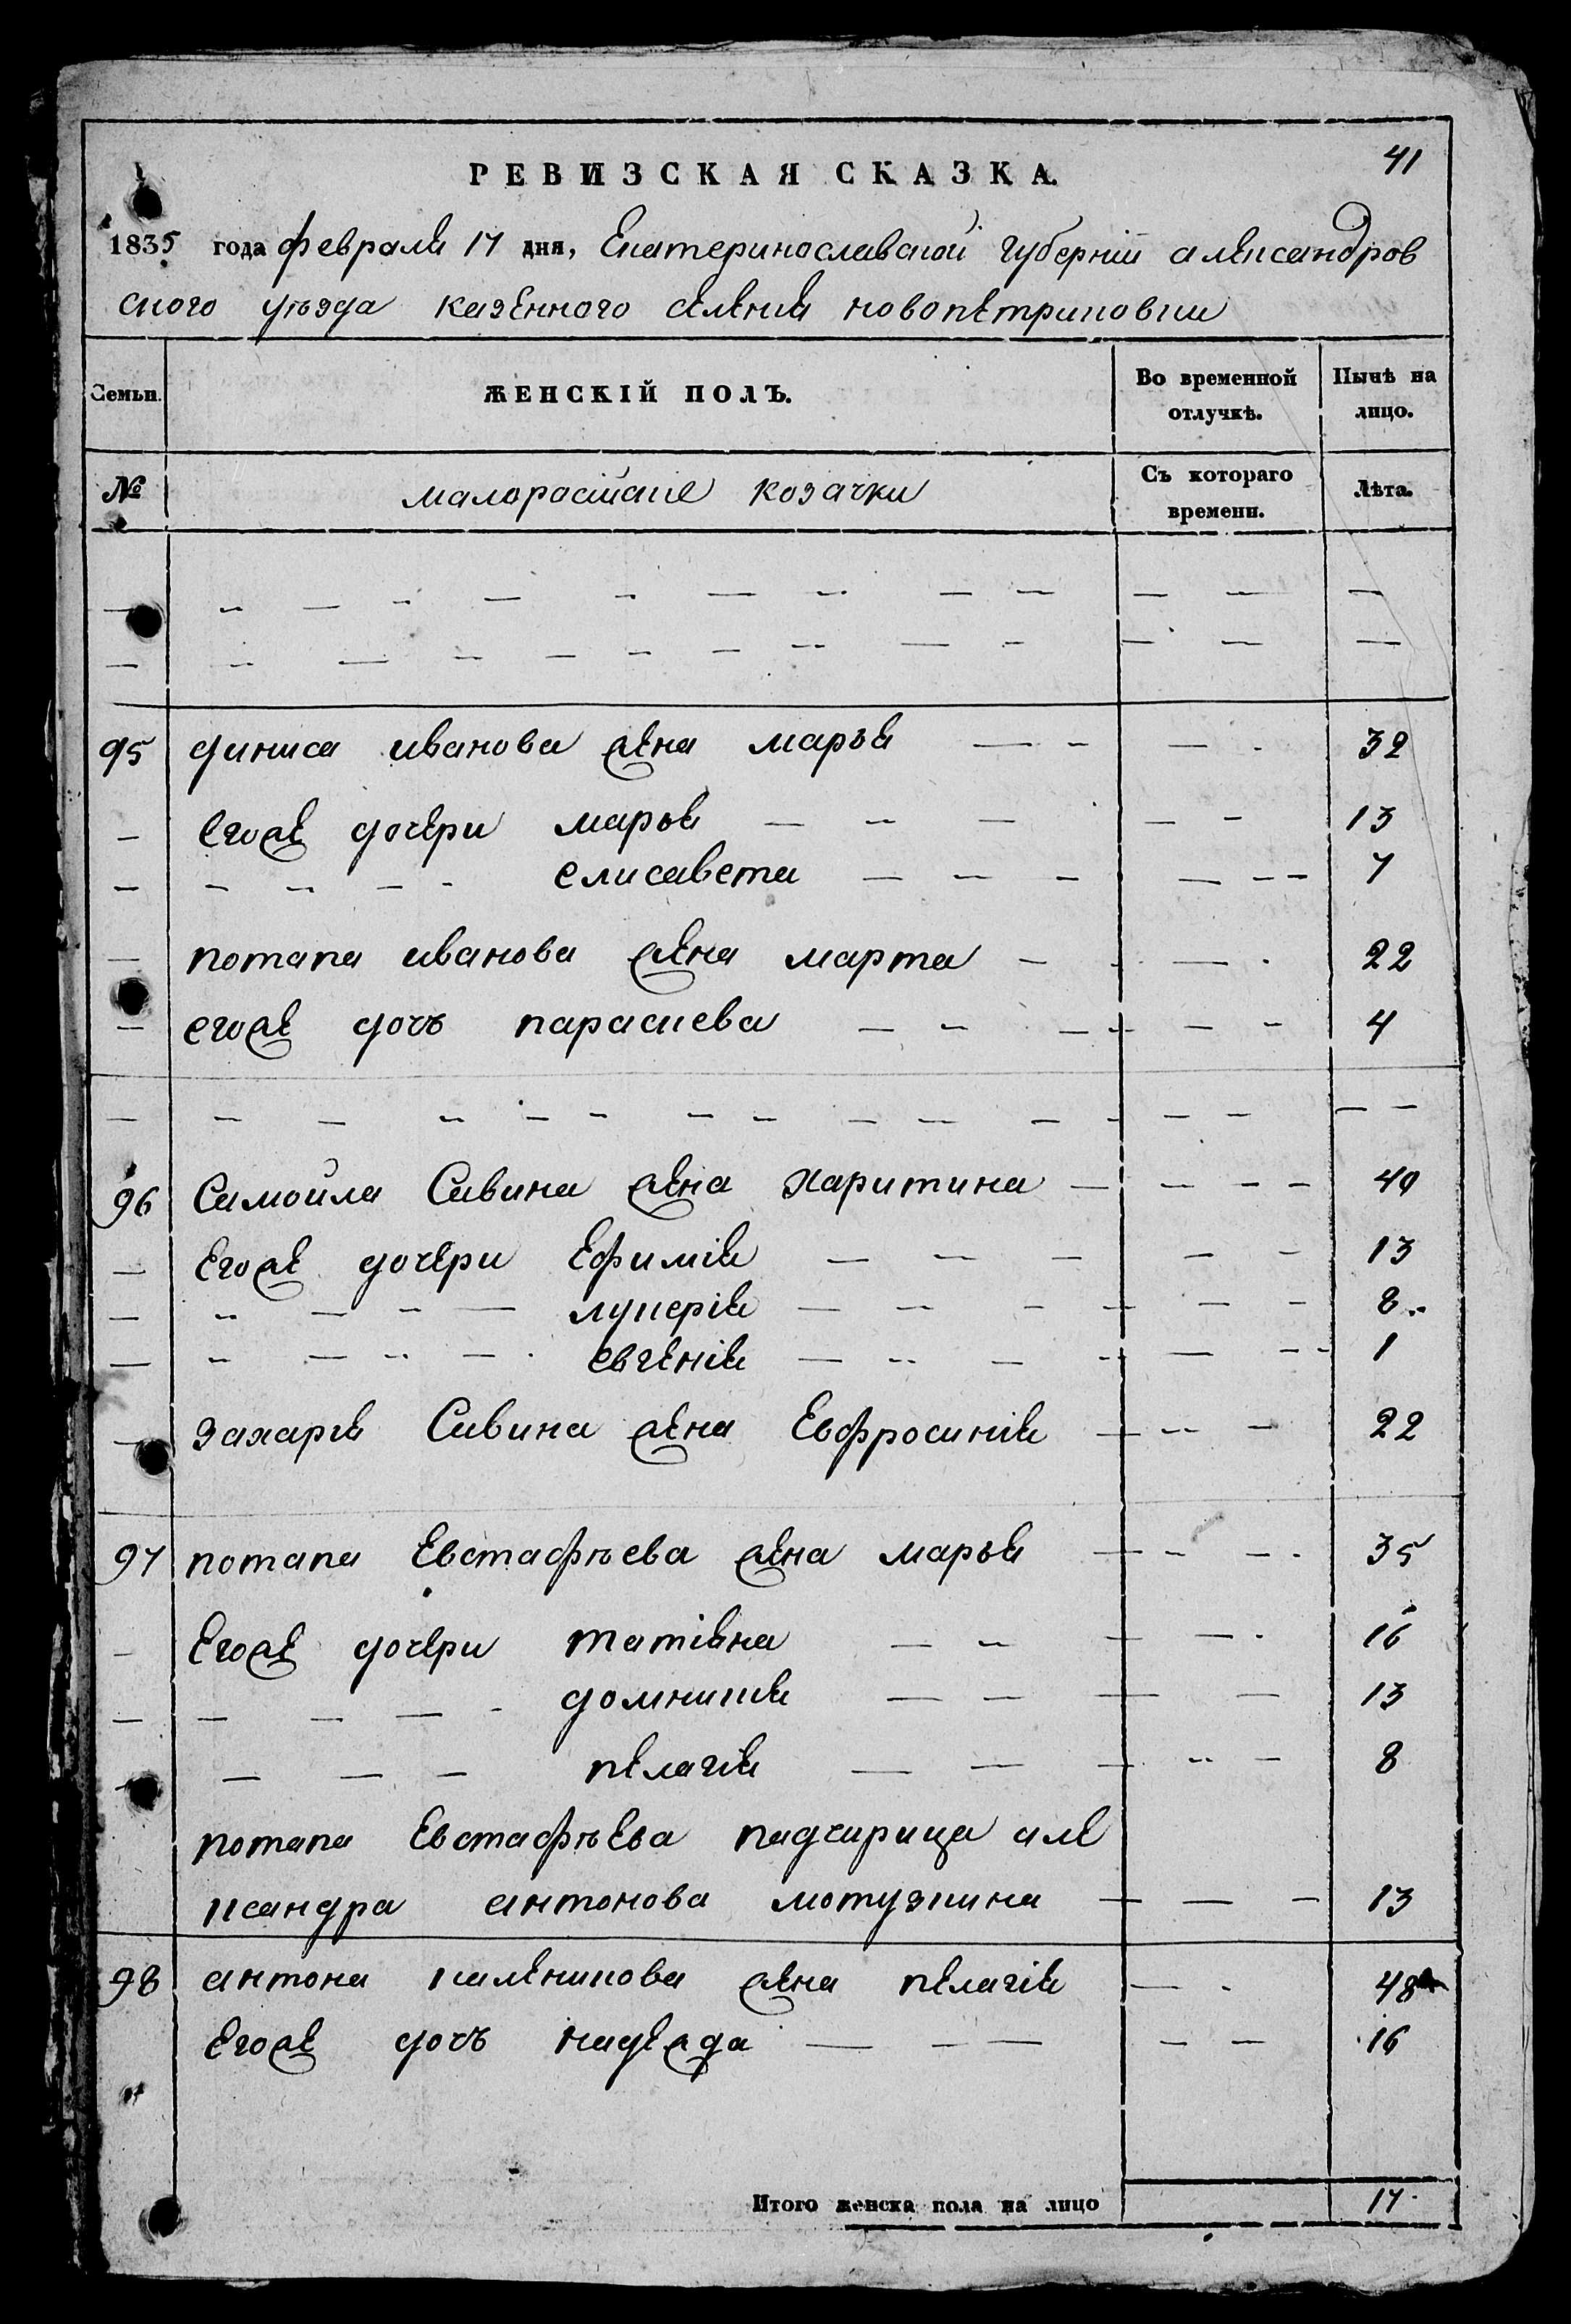 41
РЕВИЗСКАЯ СКАЗКА.
1835 года февраля 17 дня, Екатеринославской губернии александров
ского уѣзда казенного селения новопетриковки
Семьи. ЖЕНСКІЙ ПОЛЪ. Во временной отлучкѣ. Нынѣ на лицо.
№ малоросийские козачки Съ котораго времени. Лѣта.
95 диниса иванова жена марья 32
Егоже дочери марья 13
елисавета 7
потапа иванова жена марта 22
егоже дочь параскева 4
96 Самойла Савина жена Харитина 40
Егоже дочери Ефимія 13
лукерія 8
евгенія 1
захарія Савина жена Евфросинія 22
97 потапа Евстафѣева жена марья 35
Егоже дочери татіяна 16
домникия 13
пелагія 8
потапа Евстафѣева падчирица але
ксандра антонова мотузкина 13
98 антона каленикова жена пелагія 48
Егоже дочь надежда 16
Итого женска пола на лицо 17